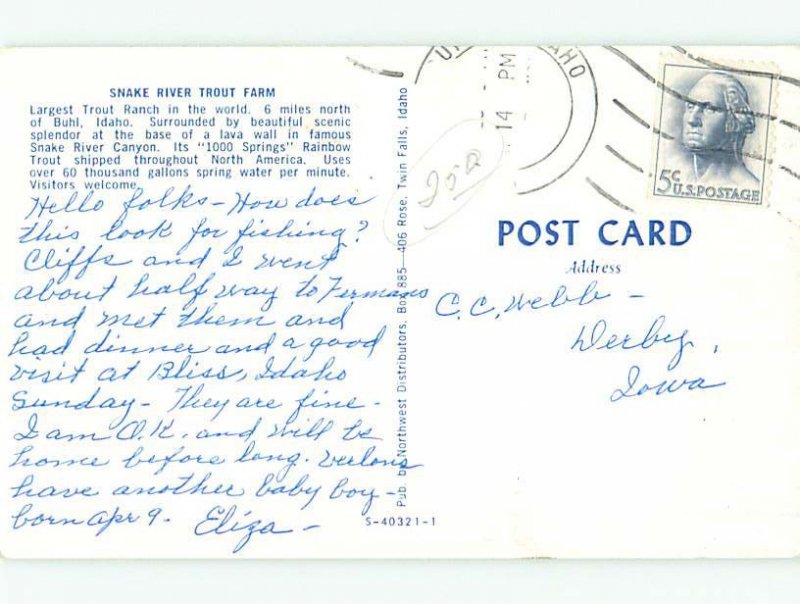 SNAKE RIVER TROUT FARM
Largest Trout Ranch in the world. 6 miles north
of Buhl, Idaho. Surrounded by beautiful scenic
splendor at the base of a lava wall in famous
Snake River Canyon. Its "1000 Springs" Rainbow
Trout shipped throughout North America. Uses
over 60 thousand gallons spring water per minute.
Visitors welcome.
Hello folks - How does
this look for fishing?
Cliffs and I went
about half way to Fermans
and met them and
had dinner and a good
visit at Bliss, Idaho
Sunday - They are fine -
I am O.K. and will be
home before long. Verlons
have another baby boy -
born Apr 9 - Eliza -
S-40321-1
Pub. by Northwest Distributors, Box 885—406 Rose, Twin Falls, Idaho
14 PM
5¢
U.S. POSTAGE
POST CARD
Address
C. C. Webb -
Derby,
Iowa